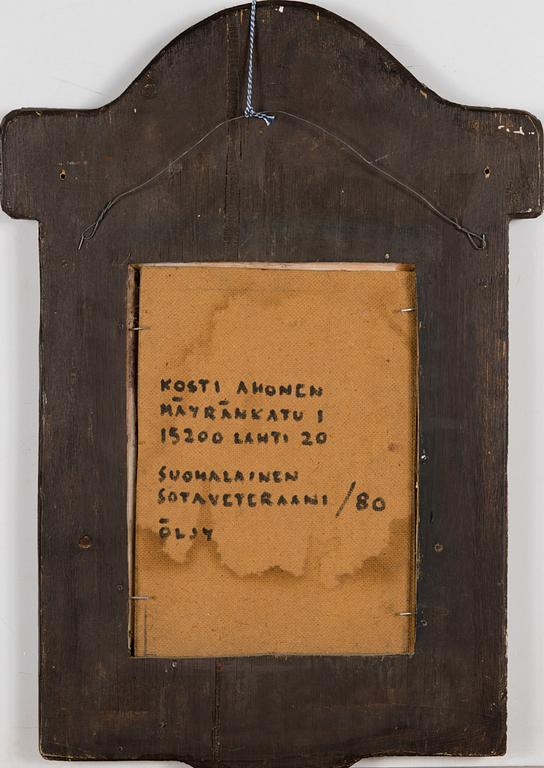 KOSTI AHONEN
MÄYRÄNKATU 1
15200 LAHTI 20
SUOMALAINEN
SOTAVETERAANI /80
ÖLJY